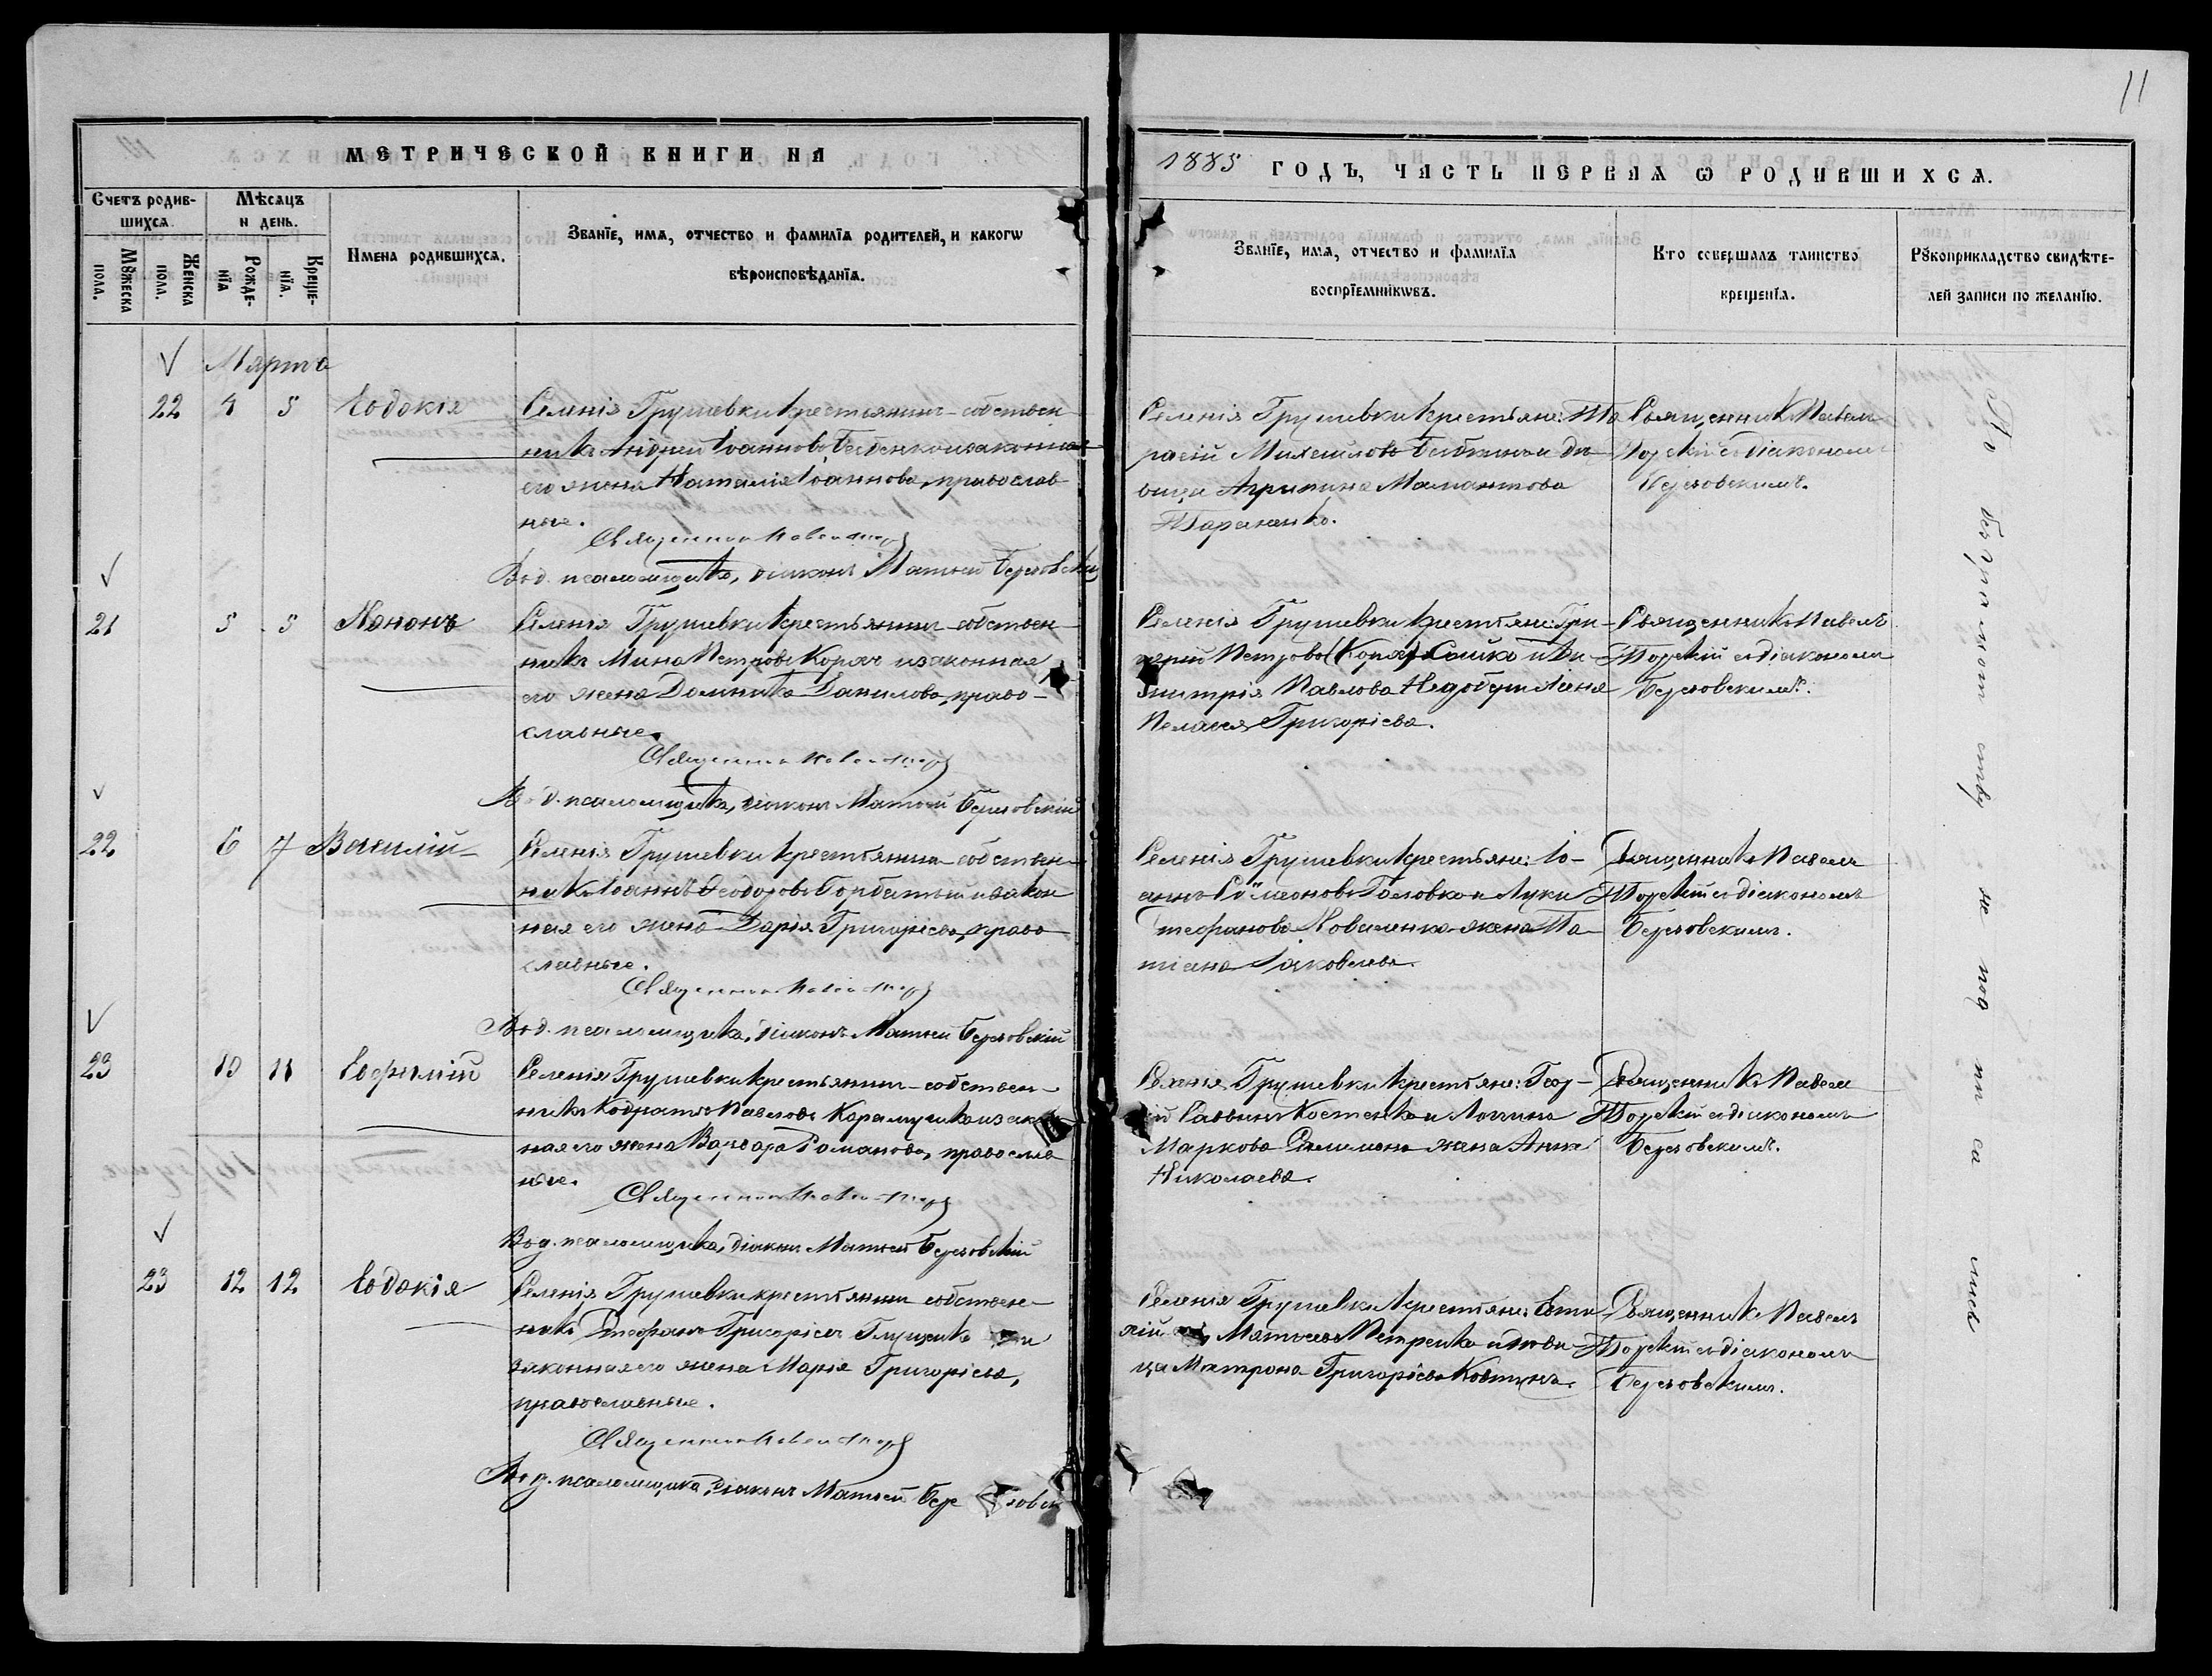 11
МЕТРИЧЕСКОЙ КНИГИ НА
1885 ГОДЪ, ЧАСТЬ ПЕРВАЯ Ѡ РОДИВШИХСЯ.
Счетъ родив-
шихся.
Мѣсяцъ
и день.
Мꙋжеска
пола.
Женска
пола.
Рожде-
нїя
Креще-
нїя.
Имена родившихся.
Званїе, имя, отчество и фамилїя родителей, и какогѡ
вѣроисповѣданїя.
Званїе, имя, отчество и фамилїя
воспрїемникѡвъ.
Кто совершалъ таинство
крещенїя.
Рꙋкоприкладство свидѣте-
лей записи по желанїю.
Марта
22 4 5 Евдокія
Селенія Грушевки крестьянинъ-собствен-
никъ Андрей Іоанновъ и законная
его жена Наталія Іоаннова, православ-
ные.
Священникъ Павелъ
Вод. псаломщика, діаконъ Матѳей Березовскій
Селенія Грушевки крестьяне: Та-
расій Михаиловъ и дѣ-
вица Агрипина Мамантова
Тараненко.
Священникъ Павелъ
Торскій съ діакономъ
Березовскимъ.
21 5 5 Кононъ
Селенія Грушевки крестьянинъ-собствен-
никъ Мина Петровъ Корячъ и законная
его жена Домника Данилова, право-
славные.
Священникъ Павелъ
Вод. псаломщика, діаконъ Матѳей Березовскій
Селенія Грушевки крестьяне: Гри-
горій Петровъ (Корячъ) Сашко и Ди-
митрія Павлова жена
Пелагія Григоріева.
Священникъ Павелъ
Торскій съ діакономъ
Березовскимъ.
22 6 7 Василій
Селенія Грушевки крестьянинъ-собствен-
никъ Іоаннъ Ѳеодоровъ Горбатый и закон-
ная его жена Дарія Григоріева, право-
славные.
Священникъ Павелъ
Вод. псаломщика, діаконъ Матѳей Березовскій
Селенія Грушевки крестьяне: Іо-
аннъ Сѵмеоновъ Головко и Луки
Стефанова Коваленка жена Та-
тіана Іаковлева.
Священникъ Павелъ
Торскій съ діакономъ
Березовскимъ.
23 10 11 Евфимій
Селенія Грушевки крестьянинъ-собствен-
никъ Кодратъ Павловъ
ная его жена Варвара Романова, православ-
ные.
Священникъ Павелъ
Вод. псаломщика, діаконъ Матѳей Березовскій
Селенія Грушевки крестьяне: Геор-
ій Саввинъ Костенко и Логгина
Маркова жена Анна
Николаева.
Священникъ Павелъ
Торскій съ діакономъ
Березовскимъ.
23 12 12 Евдокія
Селенія Грушевки крестьянинъ-собствен-
никъ Стефанъ Григоріевъ Глущенко и
законная его жена Марія Григоріева,
православные.
Священникъ Павелъ
Вод. псаломщика, діаконъ Матѳей Бере зовск
Селенія Грушевки крестьяне: Евти-
хій Матѳеевъ Петренко и дѣви-
ца Матрона Григоріева Ковтунъ.
Священникъ Павелъ
Торскій съ діакономъ
Березовскимъ.
По безграмотству не подписались